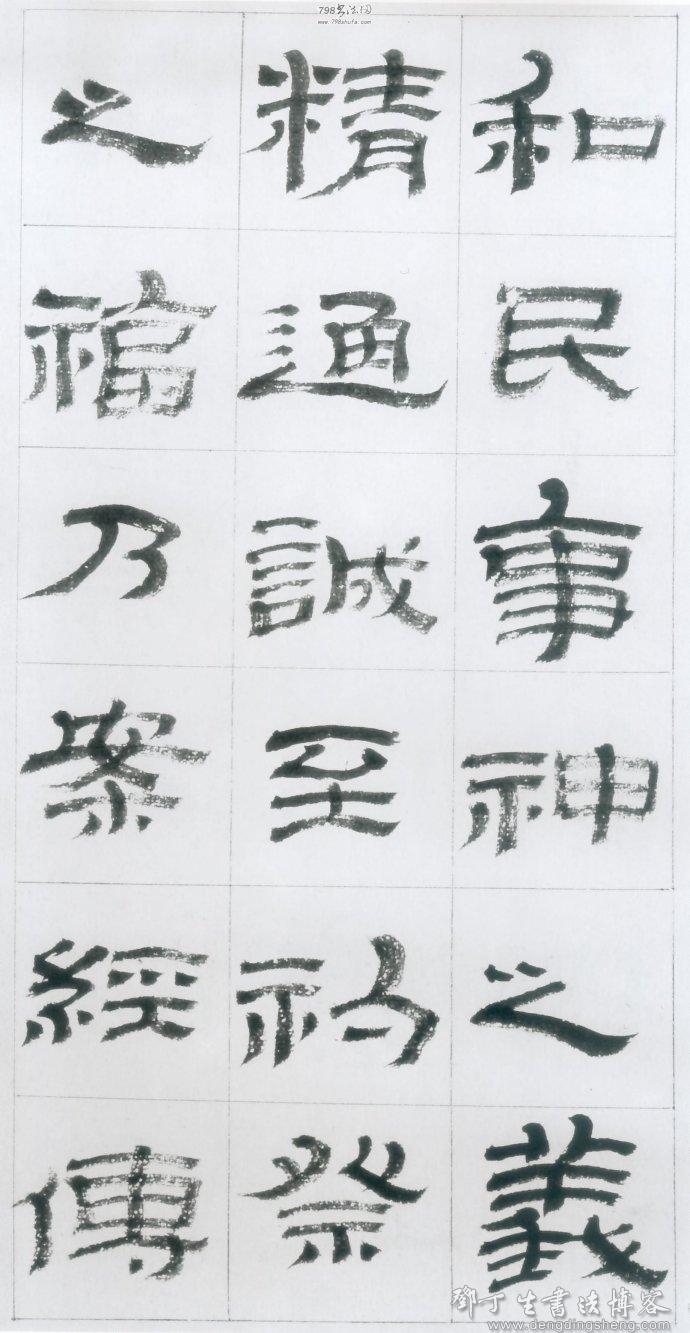 798书法网
www.798shufa.com
和民事神之義
精通誠至礿祭
之福乃案經傳
鄧丁生書法博客
www.dengdingsheng.com